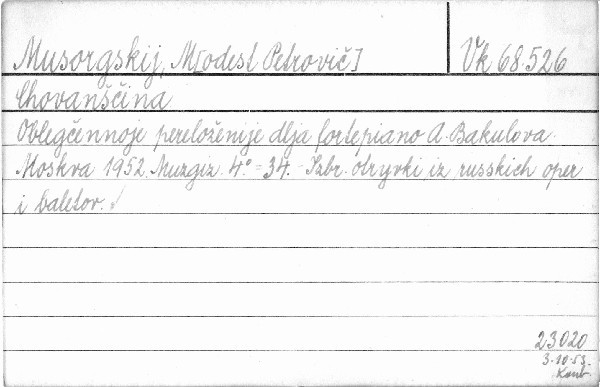 Musorgskij, M[odest Petrovič] Vk 68.526
Chovanščina
Oblegčennoje pereloženije dlja fortepiano A. Bakulova.
Moskva 1952. Muzgiz. 4° - 34. - Izbr. otryvki iz russkich oper
i baletov.
23020
3.10.53.